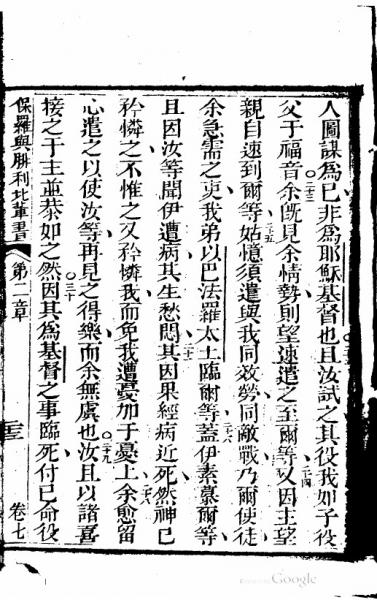 人圖謀為己非為耶穌基督也且汝試之其役我如子役
父于福音余既見余情勢則望速遣之至爾等又因主望
親自速到爾等姑憶須遣與我同效勞同敵戰乃爾使徒
余急需之吏我弟以巴法羅太土臨爾等蓋伊素慕爾等
且因汝等聞伊遭病其生愁悶其因果經病近死然神已
矜憐之不惟之又矜憐我而免我遭憂加于憂上余愈留
心遣之以使汝等再見之得樂而余無虞也汝且以諸喜
接之于主並恭如之然因其為基督之事臨死付已命役
保羅與腓利比輩書 第二章 卷七
Google